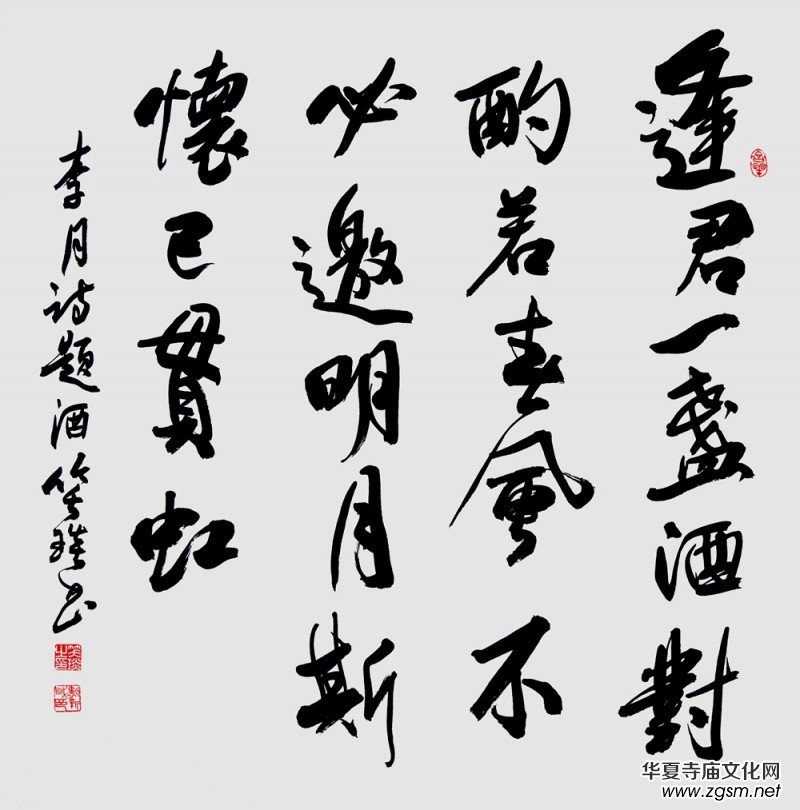 逢君一盏酒對
酌若春風不
必邀明月斯
懷已貫虹
李月诗題酒 书
华夏寺庙文化网
www.zgsm.net